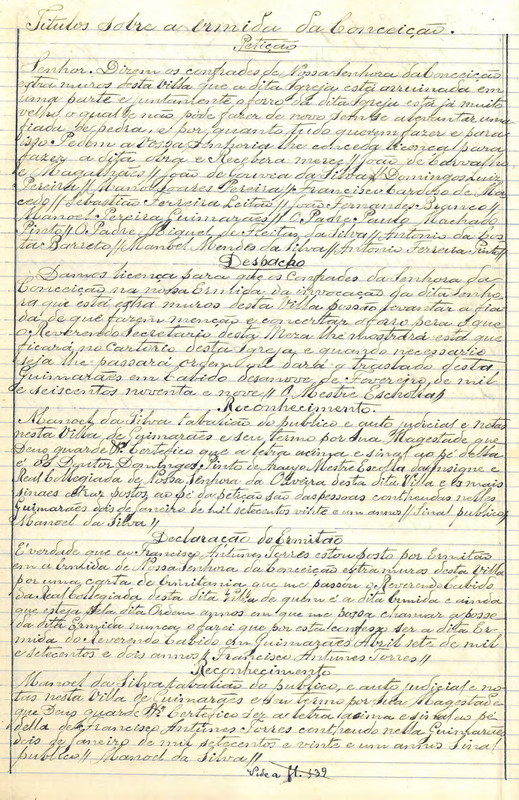 Titulos sobre a ermida da Conceição.
Petição
Senhor. Dizem os confrades de Nossa Senhora da Conceição
extra muros desta Villa que a dita Igreja está arruinada em
uma parte e juntamente o forro da dita Igreja está já muito
velho o qual se não póde fazer de novo sem se alevantar uma
fiada de pedra, e por quanto tudo querem fazer e para
isso Pedem a Vossa Senhoria lhe conceda licença para
fazer a dita obra e Receberá mercê // João de Carvalho
e Magalhães // João de Gouvia da Silva // Domingos Luiz
Pereira // Manoel Soares Pereira // Francisco Cardoso de Ma-
cedo // Sebastião Ferreira Leitão // João Fernandes Bronco //
Manoel Pereira Guimarães // O Padre Paulo Machado
Pinto // O Padre Miguel de Freitas da Silva // Antonio da Cos-
ta Barreto // Manoel Mendes da Silva // Antonio Ferreira Pinto //
Despacho
Damos licença para que os Confrades da Senhora da
Conceição na nossa Ermida da invocação da dita Senho-
ra que está extra muros desta Villa possão levantar a fia-
da de que fazem menção e concertar o forro pera o que
o Reverendo Secretario desta Meza lhe mostrará esta que
ficará no Cartorio desta Igreja, e quando necessario
seja lhe passará ordem ou dará o traslado desta
Guimarães em Cabido desanove de Fevereiro de mil
e seiscentos noventa e nove // O Mestre Eschola //
Reconhecimento.
Manoel da Silva tabalião do publico e auto judicial e notas
nesta Villa de Guimarães e seu termo por Sua Magestade que
Deus guarde Vª Certefico que a letra acima e sinal ao pé della
é do Doutor Domingos Pinto de Araujo Mestre Escolla da insigne e
Real Collegiada de Nossa Senhora da Oliveira desta dita Villa e os mais
sinaes atraz postos ao pé da petição são das pessoas contheudas nelles
Guimarães dois de janeiro de mil setecentos vinte e um annos // Sinal publico //
Manoel da Silva //
Declaração do Ermitão
É verdade que eu Francisco Antunes Torres estou posto por Ermitão
em a ermida de Nossa Senhora da Conceição extra muros desta Villa
por uma carta de ermitania que me passou o Reverendo Cabido
da Real Collegiada desta dita Villa de quem é a dita Ermida e ainda
que esteja pela dita Ordem annos em que me possa chamar a posse
da dita Ermida nunca o farei que por esta confesso ser a dita Er-
mida do Reverendo Cabido em Guimarães Abril sete de mil
e setecentos e dois annos // Francisco Antunes Torres //
Reconhecimento
Manoel da Silva tabalião do publico, e auto judicial e no-
tas nesta Villa de Guimarães e seu termo por Sua Magestade
que Deus guarde Vª Certefico ser a letra acima e sinal ao pé
della de Francisco Antunes Torres contheudo nella Guimarães
dois de janeiro de mil setecentos e vinte e um annos Sinal
publico // Manoel da Silva //
Vide a fl. 139